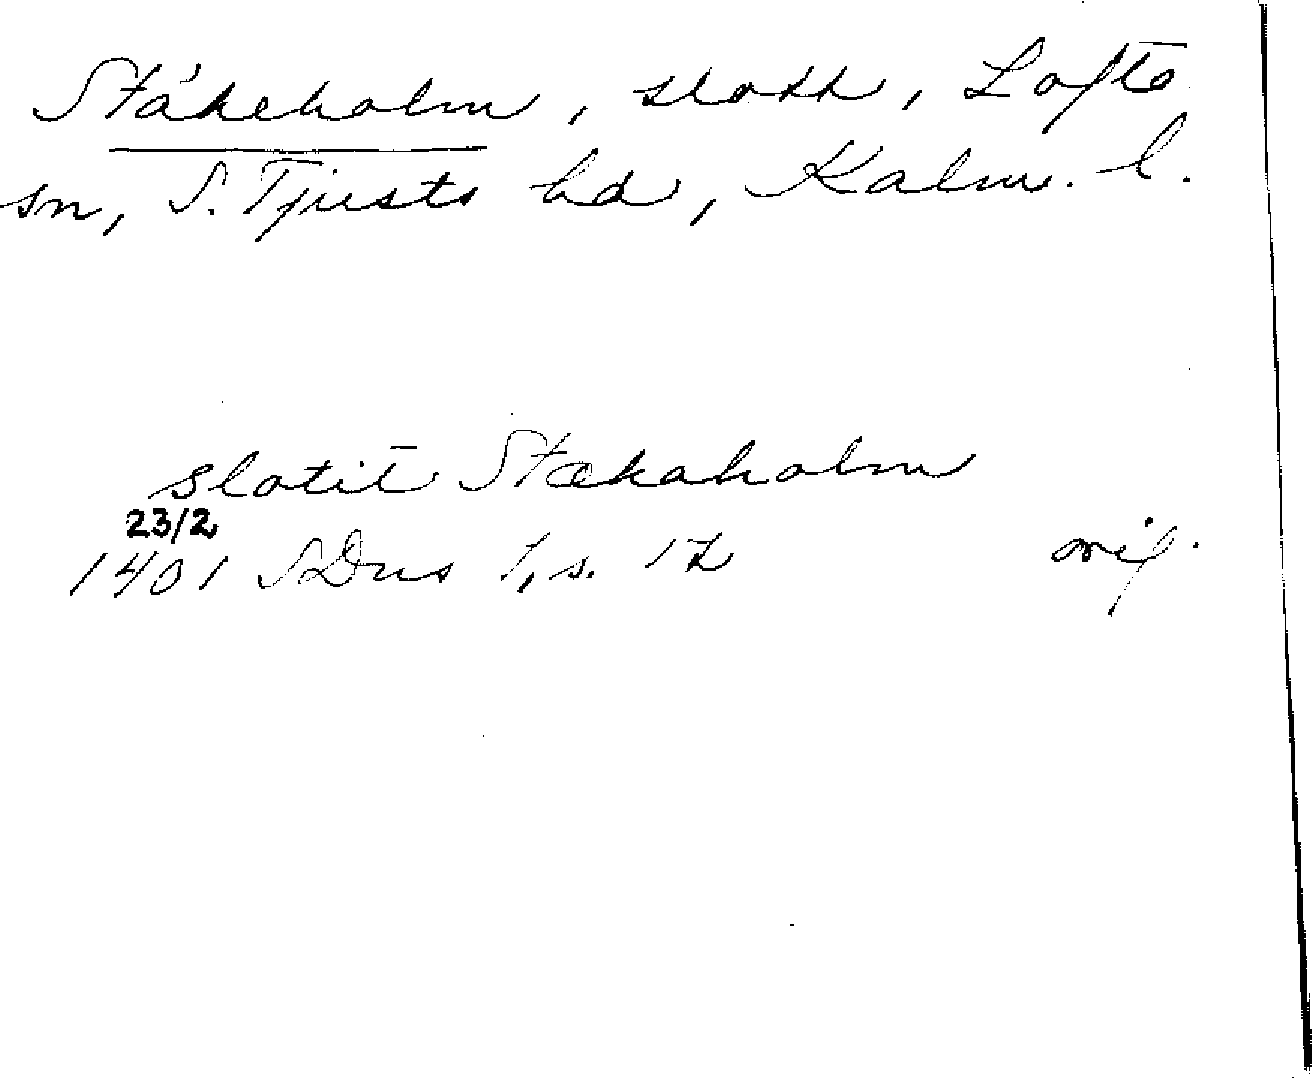 Stäkeholm, slott, Lofta
sn, S. Tjusts hd, Kalm. l.
slotit Stækaholm
23/2
1401 SDns 1, s. 12 or.